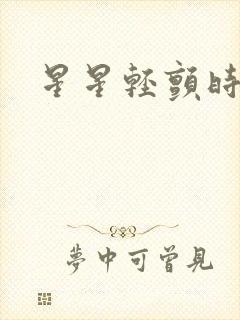 星星輕顫時
夢中可曾見